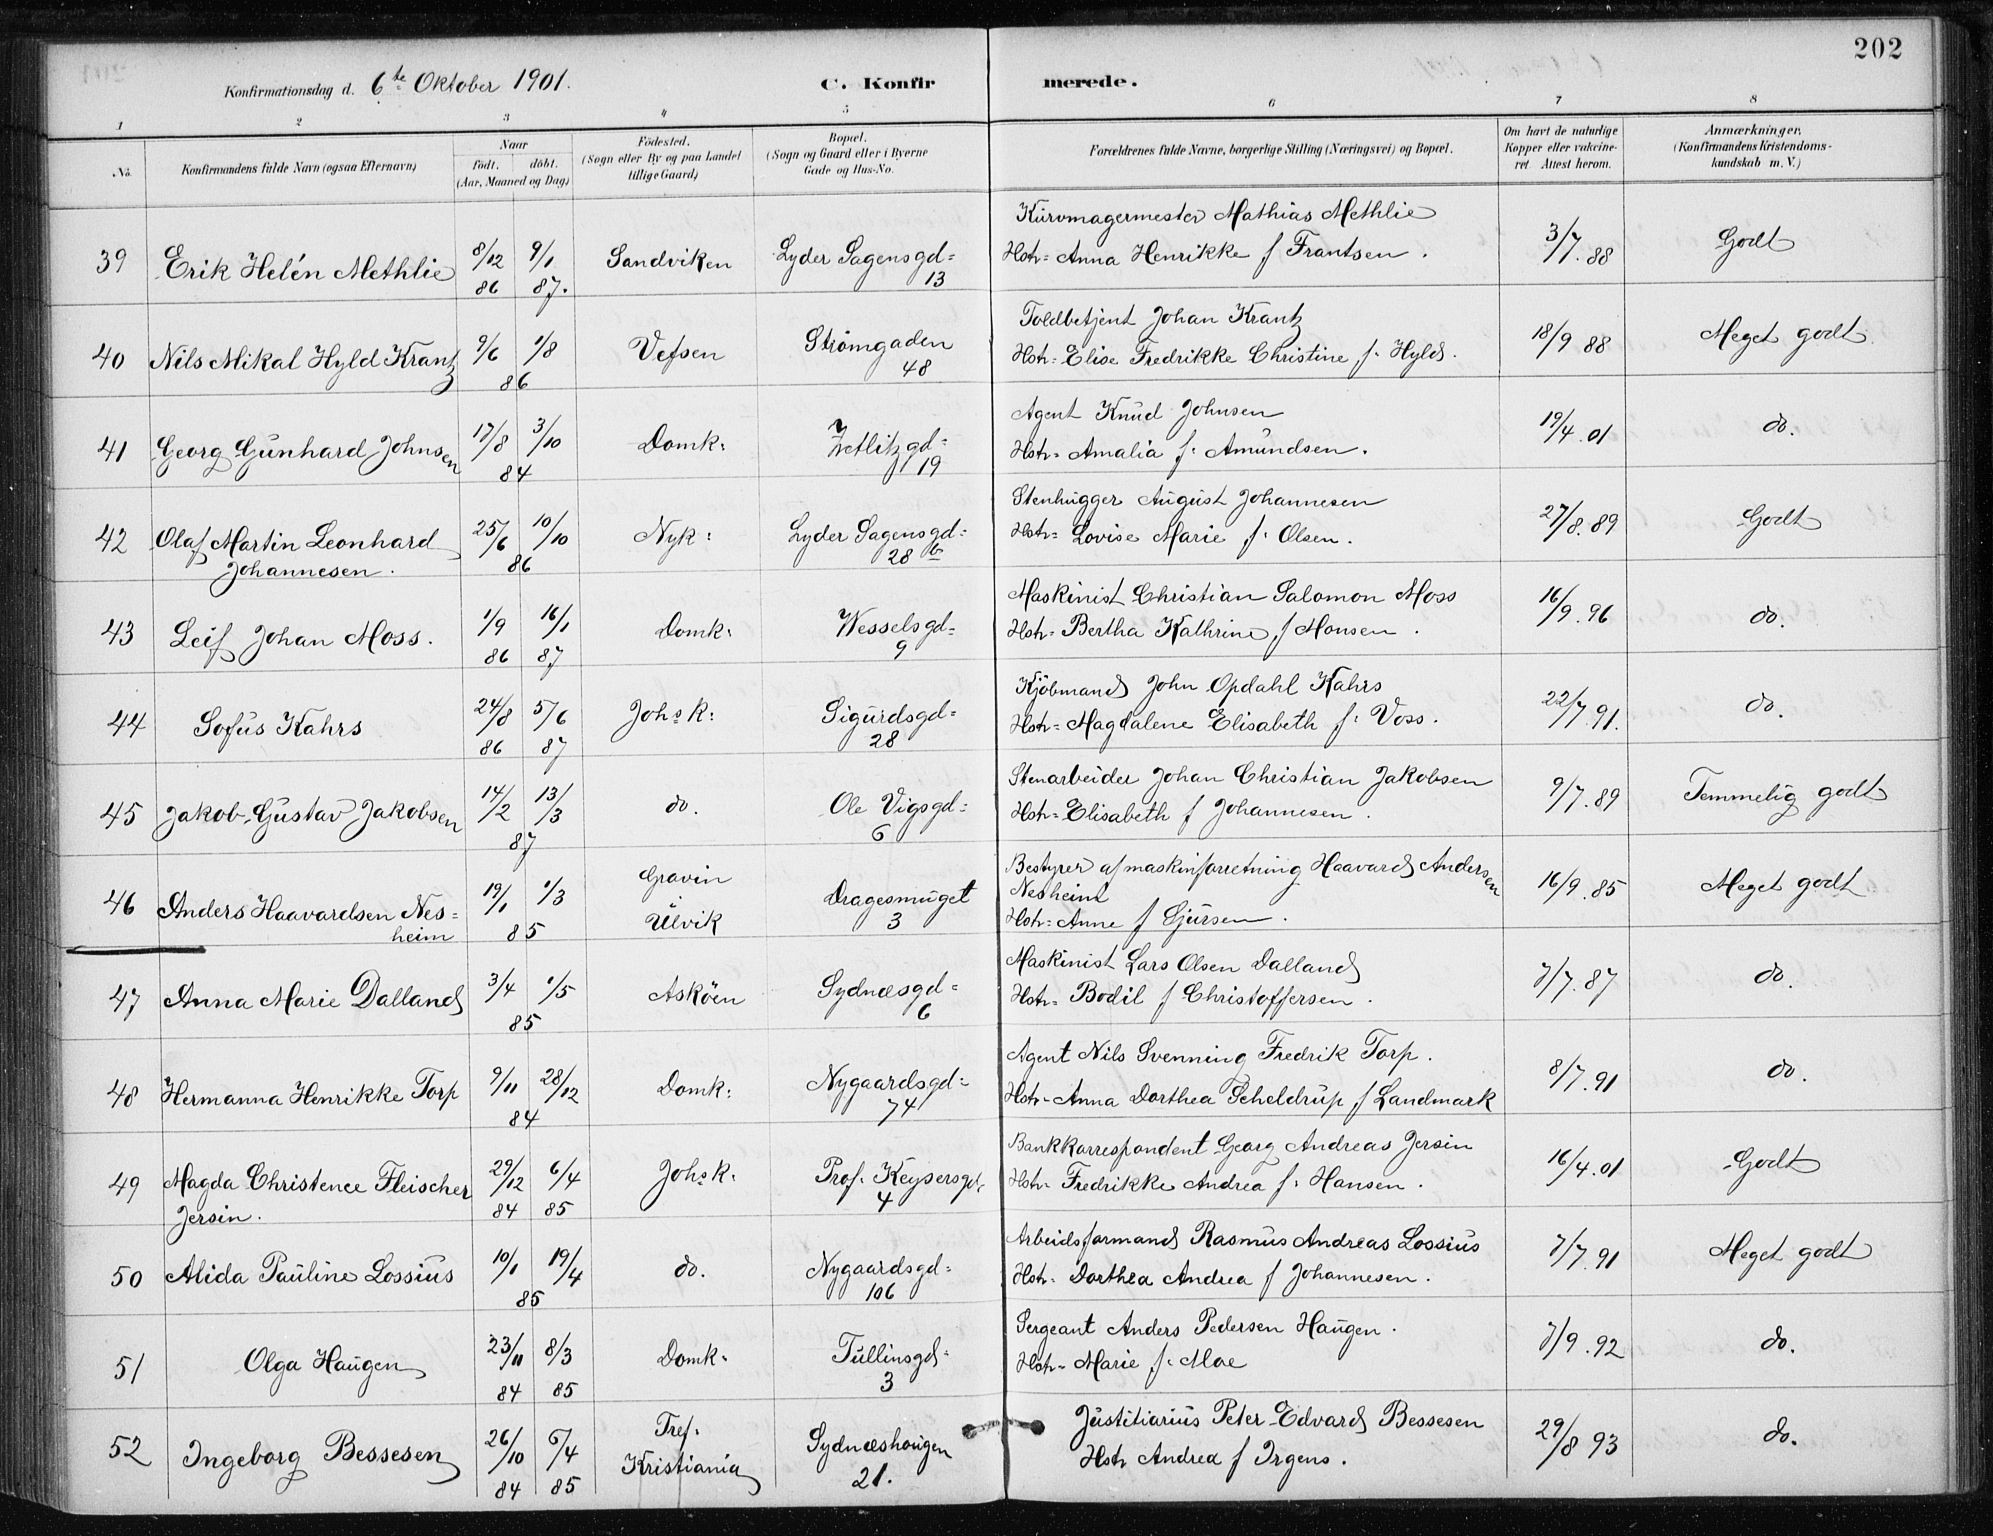 202
Konfirmationsdag d. 6te Oktober 1901.
C. Konfirmerede.
1 2 3 4 5 6 7 8
No. Konfirmandens fulde Navn (ogsaa Efternavn) Naar født. døbt. (Aar, Maaned og Dag) Fødested. (Sogn eller By og paa Landet tillige Gaard) Bopæl. (Sogn og Gaard eller i Byerne Gade og Hus-No. Forældrenes fulde Navne, borgerlige Stilling (Næringsvei) og Bopæl. Om havt de naturlige Kopper eller vakcineret Attest herom. Anmærkninger. (Konfirmandens Kristendomskundskab m. V.)
Kurvmagermester Mathias Methlie
39 Erik Helén Methlie 8/12 9/1 Sandviken Lyder Sagensgd= Hstr= Anna Henrikke f Frantsen. 3/7.88 Godt
86 87. 13
Toldbetjent Johan Krantz
40 Nils Mikal Hyld Krantz 9/6 1/8 Vefsen Strømgaden Hstr= Elise Fredrikke Christine f. Hyld. 18/9 88 Meget godt
86 48
Agent Knud Johnsen
41 Georg Gunhard Johnsen 17/8 3/10 Domk: Zetlitzgd= Hstr= Amalia f. Amundsen. 19/4.01 do.
84 19
Stenhugger August Johannesen
42 Olaf Martin Leonhard 25/6 10/10 Nyk: Lyder Sagensgd= Hstr= Lovise Marie f. Olsen. 27/8.89 Godt
Johannesen. 86 28 b
Maskinist Christian Salomon Moss
43 Leif Johan Moss. 1/9 16/1 Domk: Wesselsgd= Hstr= Bertha Kathrine f Monsen. 16/9.96 do.
86 87 9
Kjøbmand John Opdahl Kahrs
44 Sofus Kahrs 24/8 5/6 Johsk: Sigurdsgd= Hstr= Magdalene Elisabeth f. Voss. 22/7.91. do.
86 87 28
Stenarbeider Johan Christian Jakobsen
45 Jakob Gustav Jakobsen 14/2 13/3 do. Ole Vigsgd= Hstr= Elisabeth f Johannesen. 9/7.89 Temmelig godt
87 6
Gravin Bestyrer af maskinforretning Haavard Andersen
46 Anders Haavardsen Nes= 19/1 1/3 Dragesmuget Nesheim 16/9.85 Meget godt
heim 85 Ulvik 3 Hstr= Anne f Gjursen.
Maskinist Lars Olsen Dalland
47 Anna Marie Dalland 3/4 1/5 Askøen Sydnæsgd= Hstr= Bodil f Christoffersen. 7/7.87 do.
85 6
Agent Nils Svenning Fredrik Torp.
48 Hermanna Henrikke Torp 9/11 28/12 Domk: Nygaardsgd= Hstr= Anna Dorthea Scheldrup f Landmark 8/7.91 do.
84 74
Bankkorrespondent Georg Andreas Jersin
49 Magda Christence Fleischer 29/12 6/4 Johsk: Prof. Keysersgd= Hstr= Fredrikke Andrea f. Hansen. 16/4.01 Godt
Jersin. 84 85 4
Arbeidsformand Rasmus Andreas Lossius
50 Alida Pauline Lossius 10/1 19/4 do. Nygaardsgd= Hstr= Dorthea Andrea f Johannesen. 7/7.91 Meget godt
85 106
Sergeant Anders Pedersen Haugen.
51 Olga Haugen 23/11 8/3 Domk= Tullinsgd= Hstr= Marie f. Moe 7/9.92 do.
84 85 3
Tref. Justitiarius Peter Edvard Bessesen
52 Ingeborg Bessesen 26/10 5/4 Kristiania Sydnæshougen Hstr Andrea f Irgens. 29/8 93 do.
84 85 21.